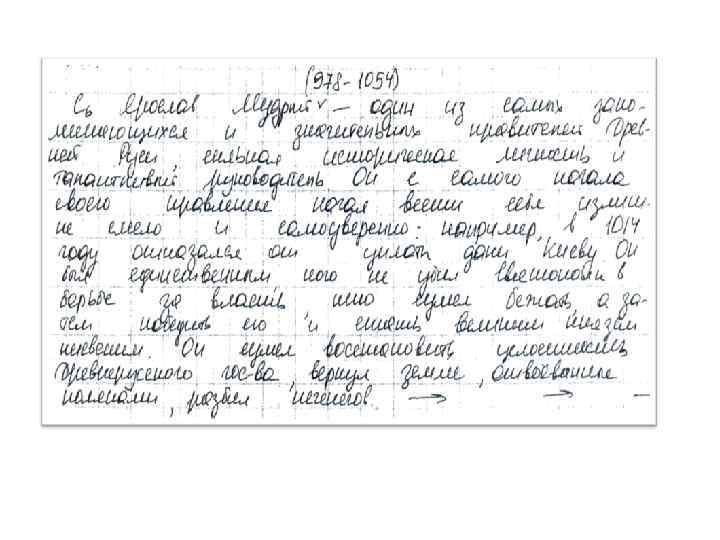 (978-1054)
Ярослав Мудрый v — один из самых запо-
минающихся и значительных правителей Древ-
ней Руси, сильная историческая личность и
талантливый руководитель. Он с самого начала
своего правления начал вести себя излиш-
не смело и самоуверенно: например, в 1014
году отказался он уплоть дань Киеву. Он
был единственным кого не убил Святополк в
борьбе за власть, кто сумел бежать, а за-
тем победить его и стать великим князем
киевским. Он сумел восстановить целостность
Древнерусского гос-ва, вернул земли, отвоёванные
поляками, разбил печенегов. → → —